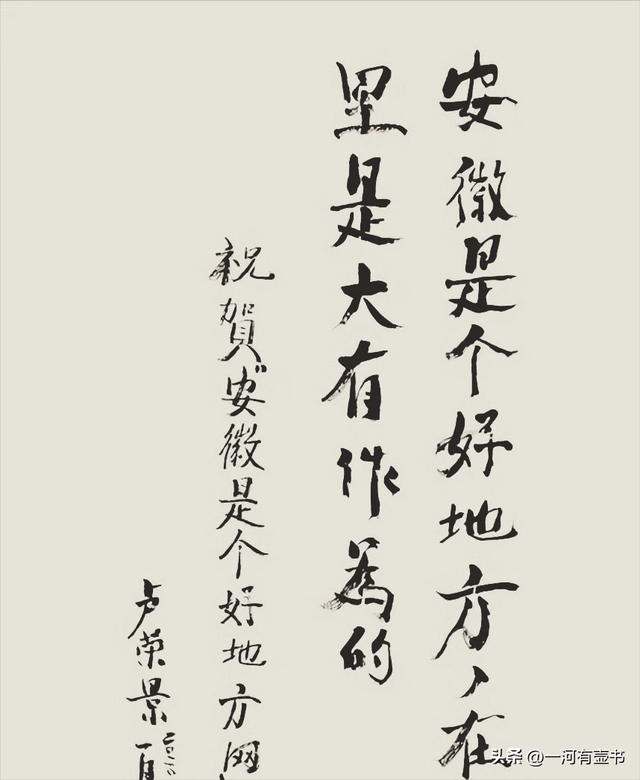 安徽是个好地方，在
里是大有作為的
祝賀“安徽是个好地方网
卢荣景
一月
头条 @一河有壶书